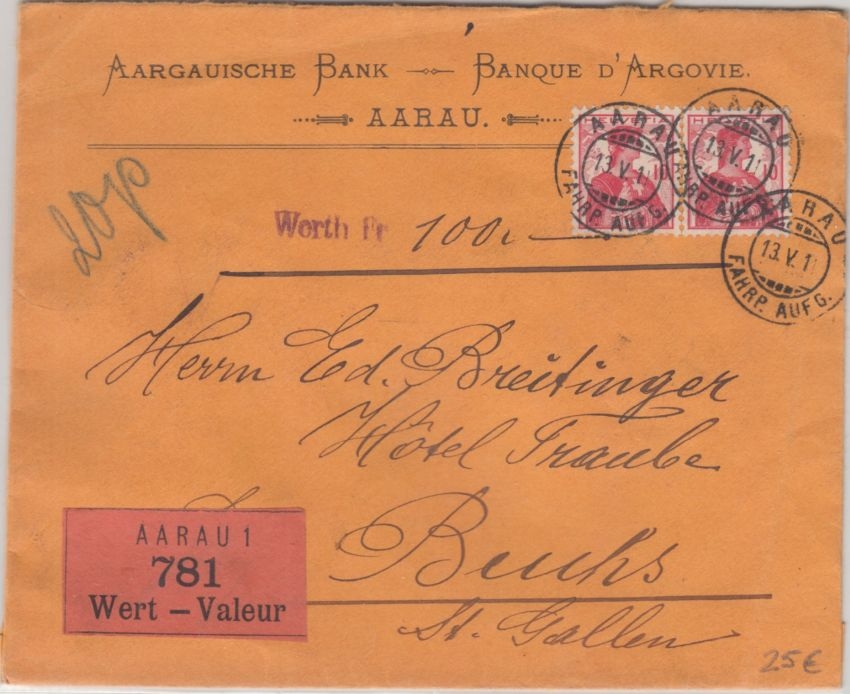 AARGAUISCHE BANK — BANQUE D'ARGOVIE.
AARAU.
HELVETIA
10
AARAU
13.V.11
FAHRP. AUFG.
AARAU
13.V.11
FAHRP. AUFG.
AARAU
13.V.11
FAHRP. AUFG.
20p
Werth Fr 100.—
Herrn Ed. Breitinger
Hôtel Traube
Buchs
St. Gallen
AARAU 1
781
Wert – Valeur
25€